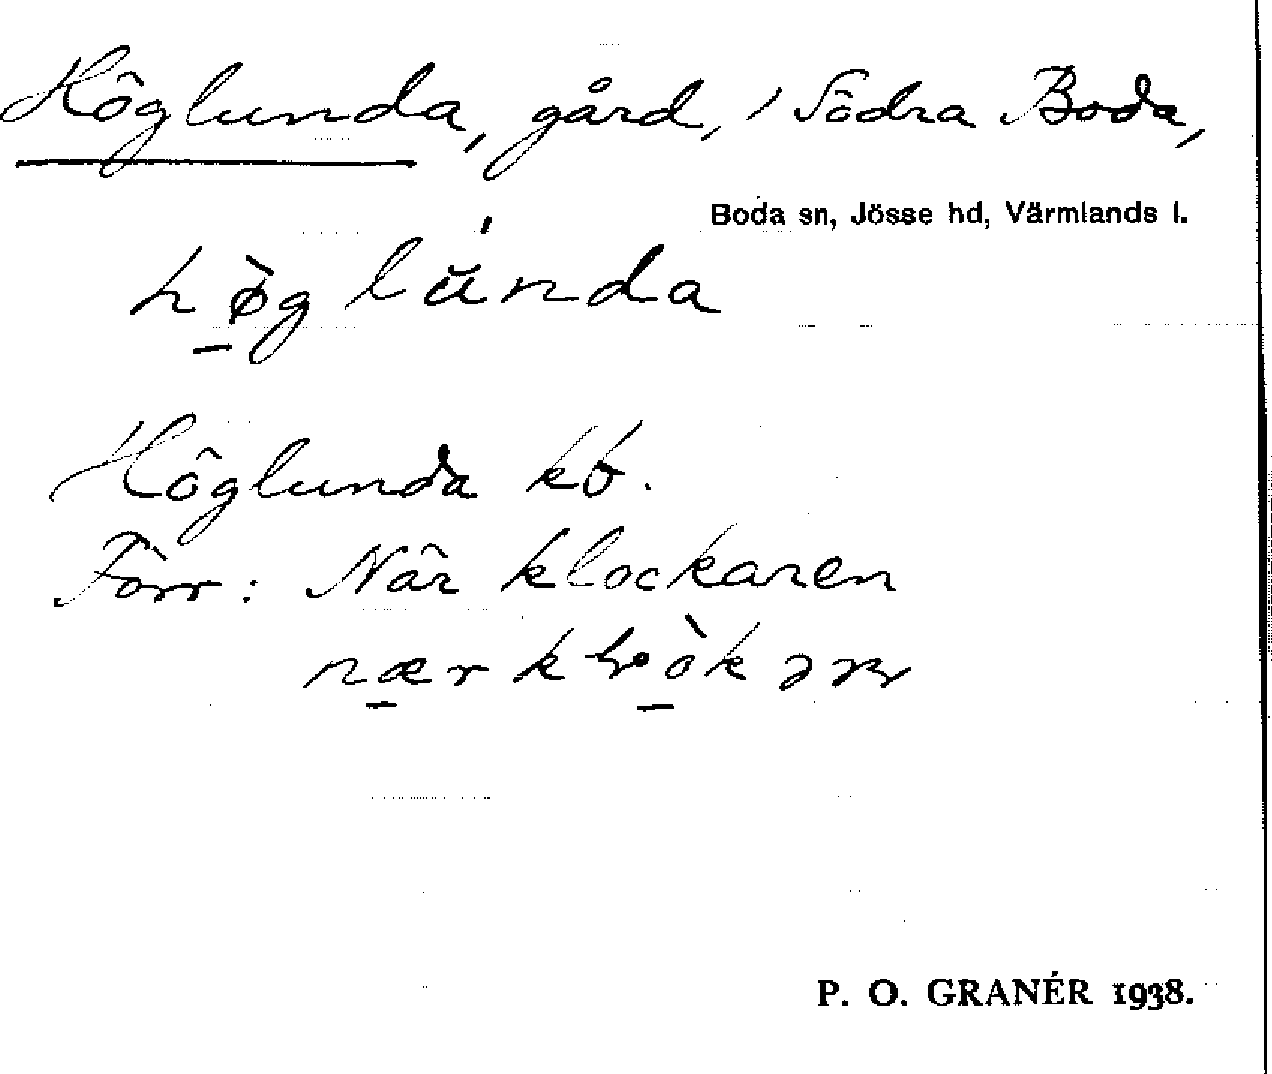 Höglunda, gård, i Södra Boda,
Boda sn, Jösse hd, Värmlands l.
hø̀glúnda
Höglunda kb.
Förr: När klockaren
nær
P. O. GRANÉR 1938.